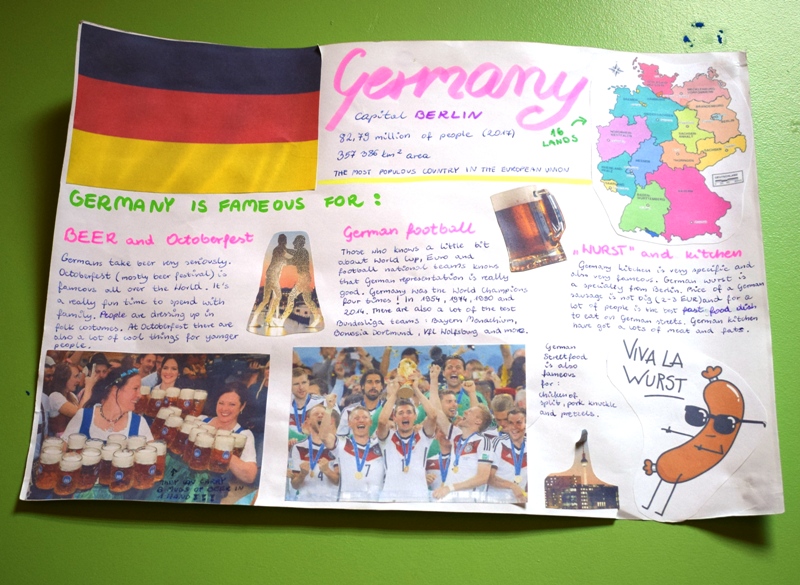 Germany
Capital BERLIN
82,79 million of people (2017)
357 386 km² area
THE MOST POPULOUS COUNTRY IN THE EUROPEAN UNION
16
LANDS
GERMANY IS FAMEOUS FOR:
BEER and Octoberfest
Germans take beer very seriously.
Octoberfest (mostly beer festival) is
fameous all over the World. It's
a really fun time to spend with
family. People are dressing up in
folk costumes. At Octoberfest there are
also a lot of cool things for younger
people.
THEY CAN CARRY
OF BEER IN
1 HAND!!!
German football
Those who knows a little bit
about World Cup, Euro and
football national teams knows
that German representation is really
good. Germany was the World Champions
four times! In 1954, 1974, 1990 and
2014. There are also a lot of the best
Bundesliga teams: Bayern Monachium,
Borussia Dortmund, VFL Wolfsburg and more.
„WURST" and kitchen
Germany kitchen is very specific and
also very fameous. German wurst is
a specialty from Berlin. Price of a German
sausage is not big (2-3 EUR) and for a
lot of people is the best fast food dish
to eat on German streets. German kitchen
have got a lots of meat and fats.
German
Streetfood
is also
fameous
for:
chicken of
split, pork knuckle
and pretzels.
VIVA LA
WURST